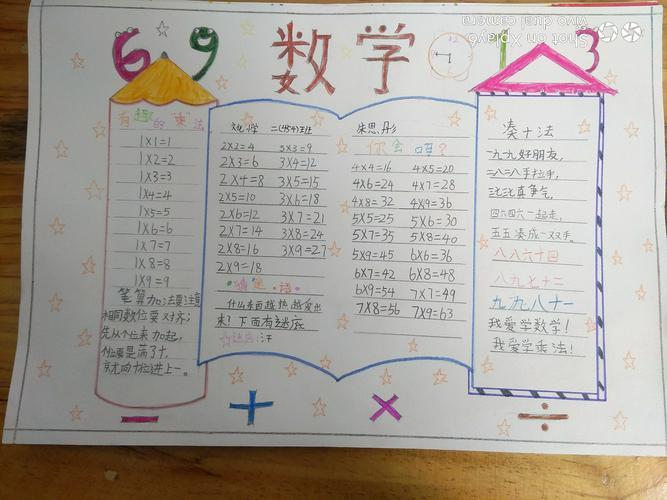 69 数学 1 3
Shot on Xplay6
vivo dual camera
有趣的"乘"法
1×1=1
1×2=2
1×3=3
1×4=4
1×5=5
1×6=6
1×7=7
1×8=8
1×9=9
笔算加法要注意
相同数位要对齐;
先从个位来加起,
个位要是满了十,
就向十位进上一。
文化学 二(4)班
2×2=4 3×3=9
2×3=6 3×4=12
2×4=8 3×5=15
2×5=10 3×6=18
2×6=12 3×7=21
2×7=14 3×8=24
2×8=16 3×9=27
2×9=18
猜谜语
什么东西越热越爱出
来? 下面有谜底
谜底:汗
朱思彤
你会吗?
4×4=16 4×5=20
4×6=24 4×7=28
4×8=32 4×9=36
5×5=25 5×6=30
5×7=35 5×8=40
5×9=45 6×6=36
6×7=42 6×8=48
6×9=54 7×7=49
7×8=56 7×9=63
凑十法
一九一九好朋友,
二八二八手拉手,
三七三七真争气,
四六四六一起走,
五五凑成一双手。
八八六十四
八九七十二
九九八十一
我爱学数学!
我爱学乘法!
- + × ÷